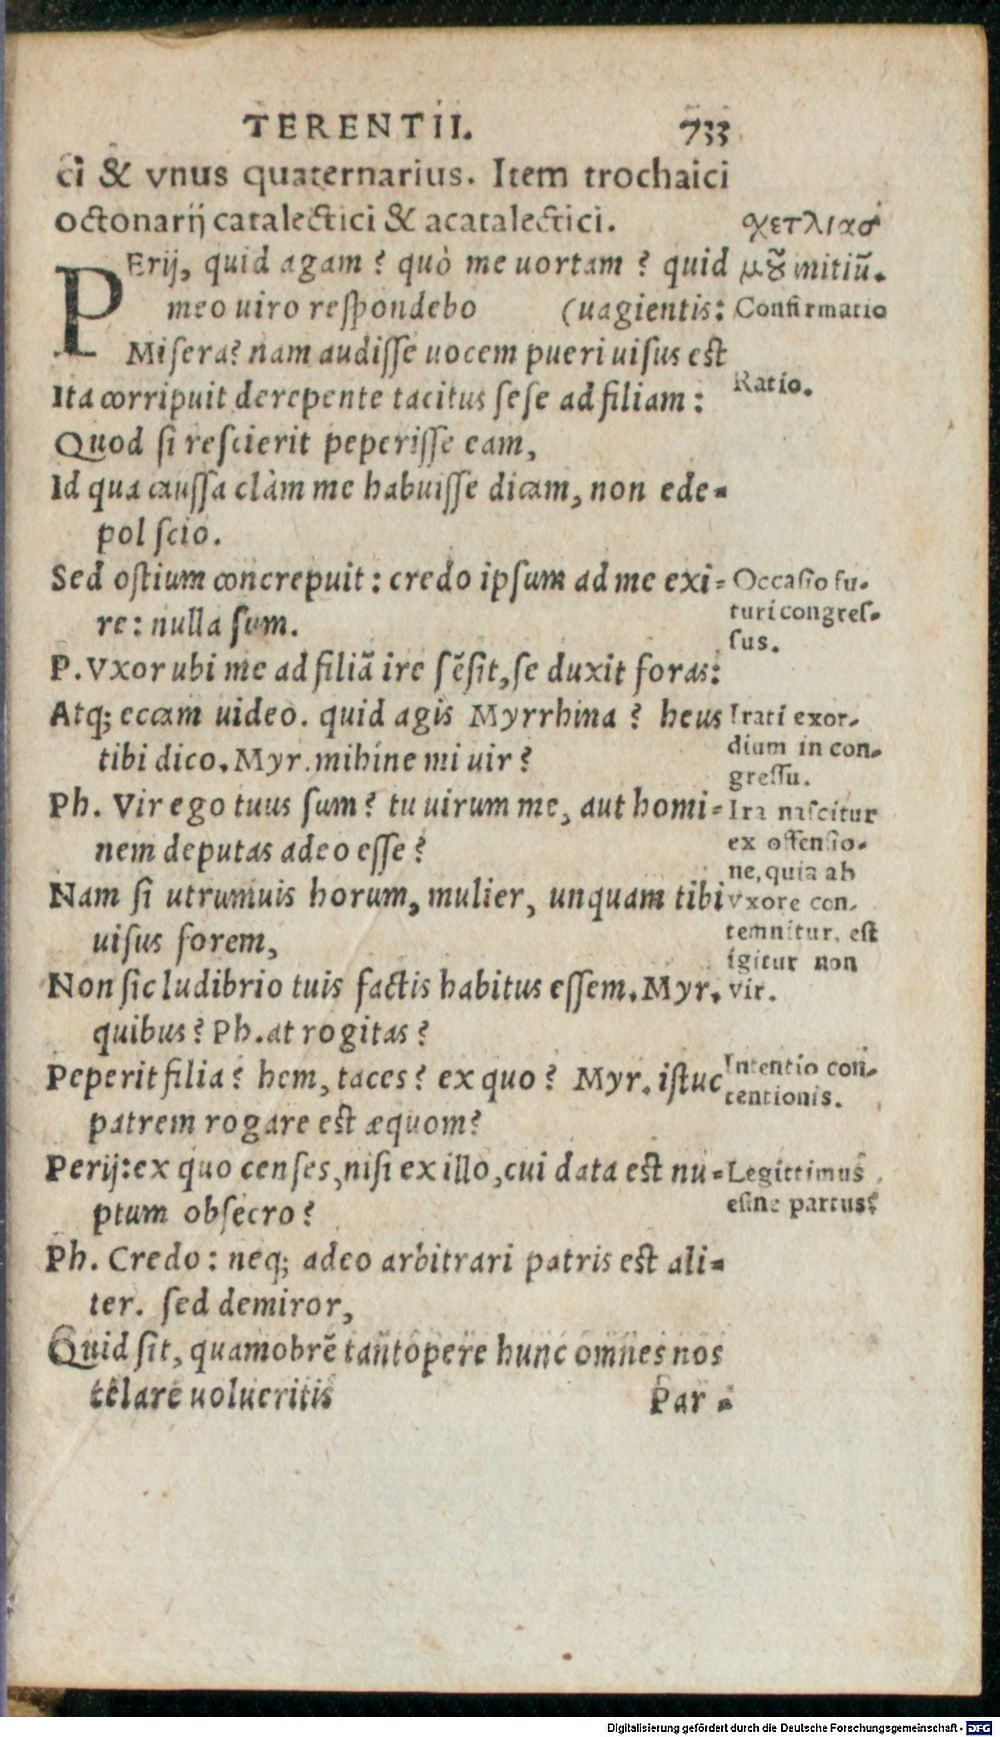 TERENTII. 733
ci & vnus quaternarius. Item trochaici
octonarij catalectici & acatalectici.
PErij, quid agam? quò me uortam? quid
meo uiro respondebo (uagientis:
Misera? nam audisse uocem pueri uisus est
Ita corripuit derepente tacitus sese ad filiam:
Quod si rescierit peperisse eam,
Id qua caussa clàm me habuisse dicam, non ede-
pol scio.
Sed ostium concrepuit: credo ipsum ad me exi-
re: nulla sum.
P. Vxor ubi me ad filiā ire sēsit, se duxit foras:
Atq; eccam uideo. quid agis Myrrhina? heus
tibi dico. Myr. mihine mi uir?
Ph. Vir ego tuus sum? tu uirum me, aut homi-
nem deputas adeo esse?
Nam si utrumuis horum, mulier, unquam tibi
uisus forem,
Non sic ludibrio tuis factis habitus essem. Myr.
quibus? Ph. at rogitas?
Peperit filia? hem, taces? ex quo? Myr. istuc
patrem rogare est æquom?
Perij: ex quo censes, nisi ex illo, cui data est nu-
ptum obsecro?
Ph. Credo: neq; adeo arbitrari patris est ali-
ter. sed demiror,
Quid sit, quamobrē tantopere hunc omnes nos
cēlare uolueritis
Par-
σχετλιασ
μὸς initiū.
Confirmatio
Ratio.
Occasio fu-
turi congres-
sus.
Irati exor-
dium in con-
gressu.
Ira nascitur
ex offensio-
ne, quia ab
vxore con-
temnitur. est
igitur non
vir.
Intentio con-
tentionis.
Legittimus
esine partus?
Digitalisierung gefördert durch die Deutsche Forschungsgemeinschaft - DFG